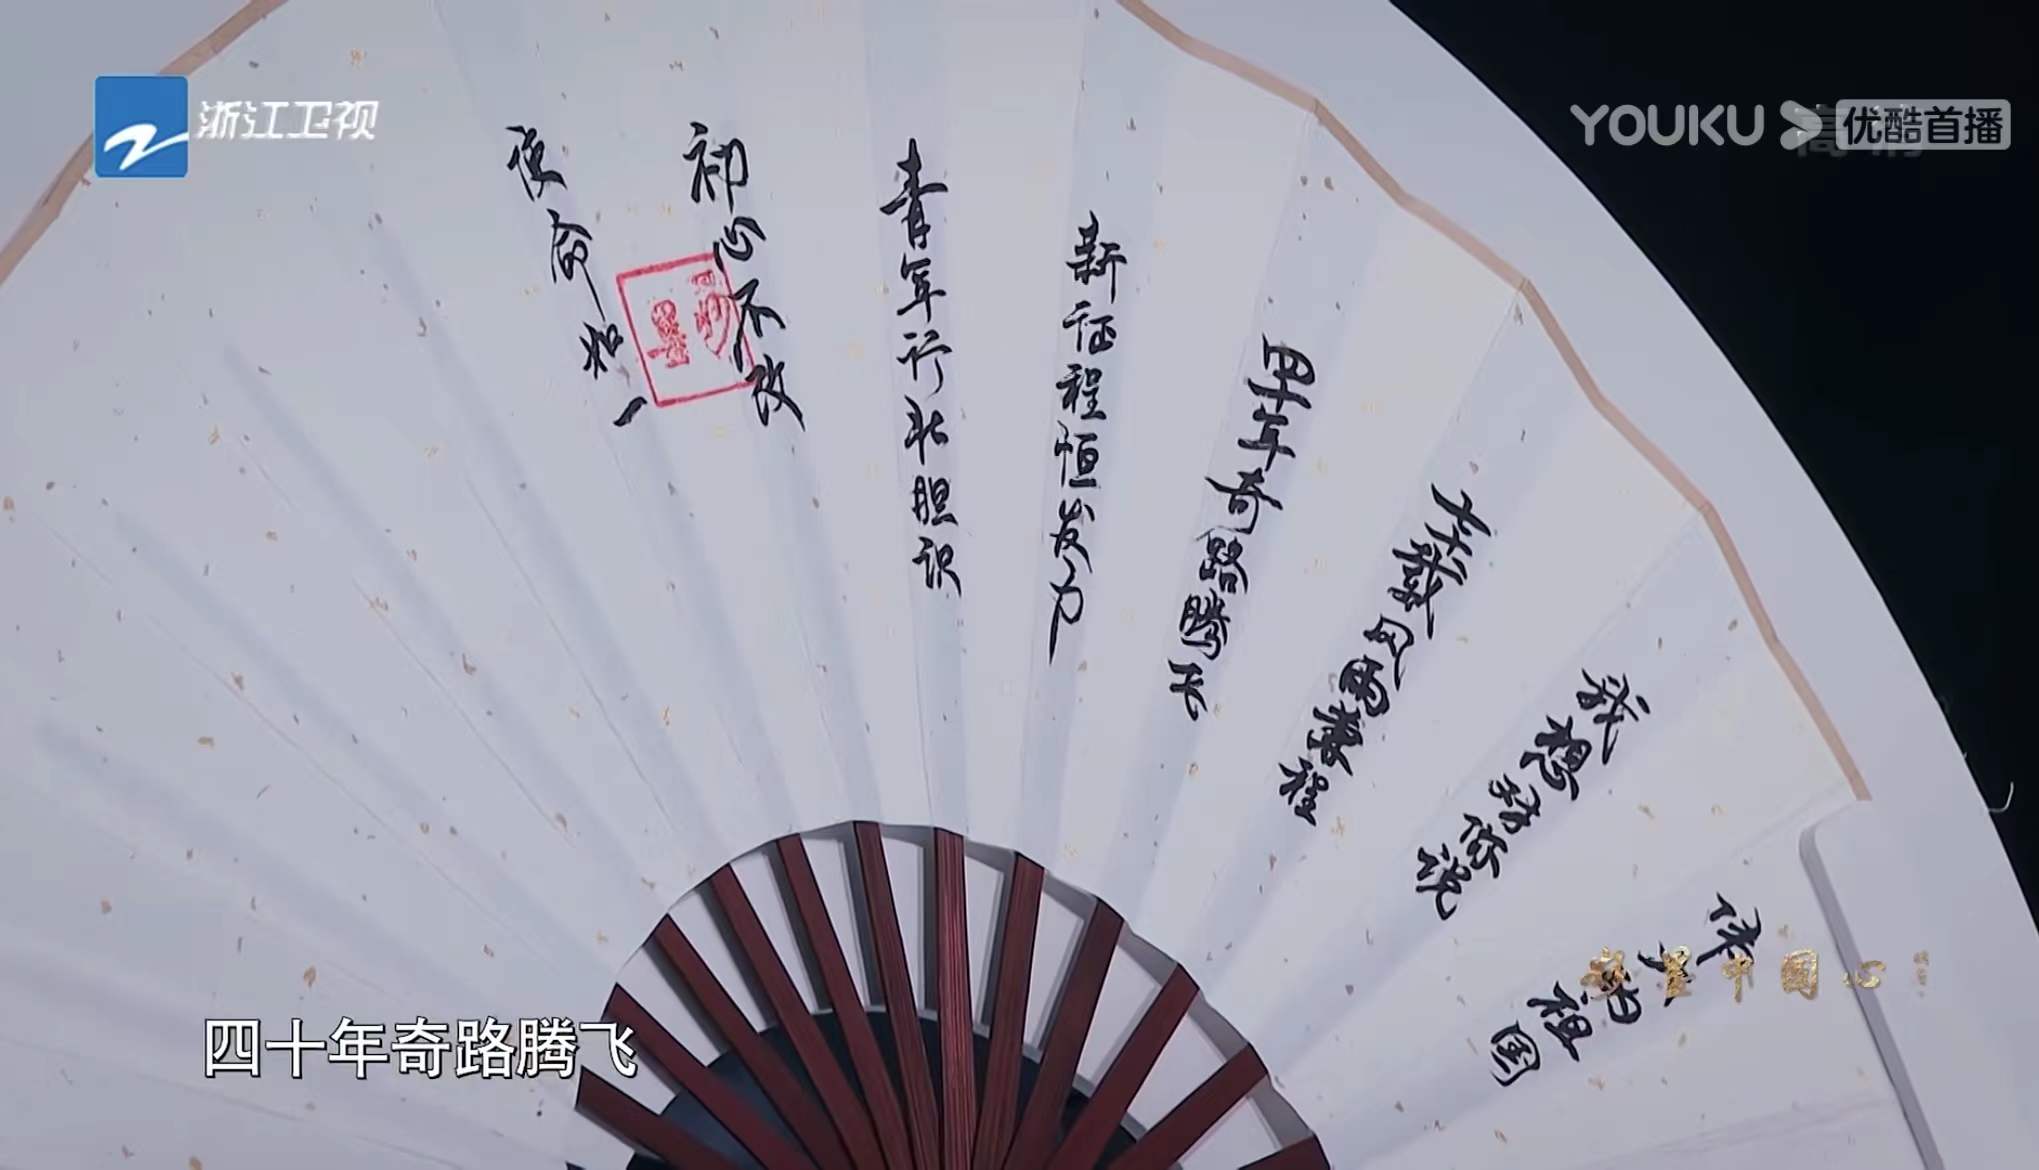 浙江卫视
YOUKU
优酷首播
伟大的祖国
我想对你说
七十载风雨兼程
四十年奇路腾飞
新征程恒发力
青年行北胆识
初心不改
使命如一
妙墨中国心
四十年奇路腾飞